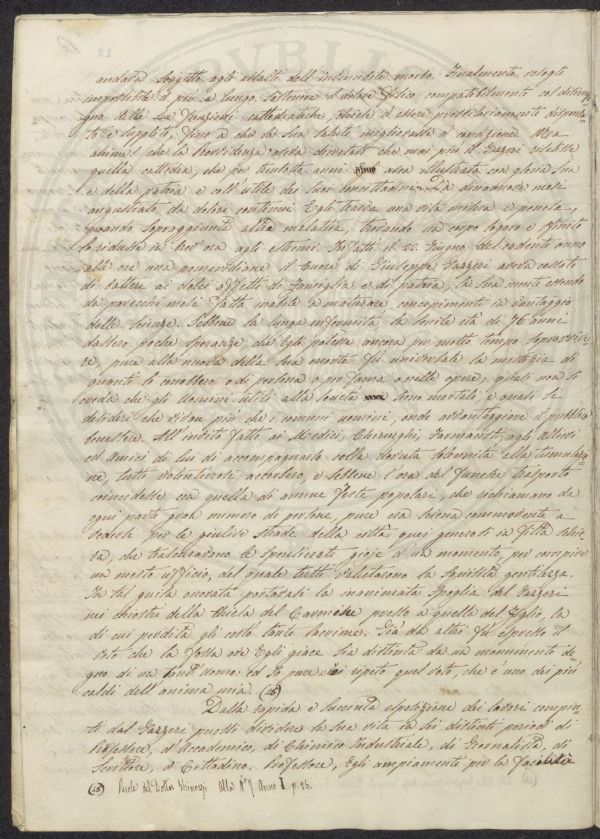 andava soggetto agli assalti dell'invincibile morbo. Finalmente resogli
impossibile il più a lungo sostenere il dolore fisico compatibilmente col disimpe-
gno delle sue funzioni cattedratiche, chiese d'essere provvisoriamente dispensa-
to e supplito, fino a che la sua salute migliorasse di condizione. Ma
ahimè! che la Provvidenza aveva decretato che mai più il Gazzeri risalisse
quella cattedra, che per trentotto anni avea illustrata con gloria sua
e della patria e coll'utile dei suoi concittadini. Da diciannove mesi
angustiato da dolori continui Egli traeva una vita misera e penosa,
quando sopraggiunta altra malattia, trovando un corpo logoro e sfinito
lo ridusse in brev'ora agli estremi. Infatti il 22 Giugno del cadente anno
alle ore una pomeridiane il Cuore di Giuseppe Gazzeri aveva cessato
di battere ai dolci affetti di famiglia e di patria, la sua mente essendo
da parecchi mesi fatta inabile a maturare concepimenti in vantaggio
delle scienze. Sebbene la lunga infermità la senile età di 76 anni
dassero poche speranze, che Egli potesse ancora per molto tempo sopravvive-
re, pure alla nuova della sua morte fu universale la mestizia di
quanti lo conobbero o di persona o per fama o nelle opere; quasi non si
creda che gli Uomini utili alla società sieno mortali, e quasi si
desideri che vivan più che i comuni uomini, onde avvantaggiare il pubblico
benessere. All'invito fatto ai Medici, Chirurghi, Farmacisti, agli Allievi
ed Amici di lui di accompagnarlo colla dovuta solennità alla tumulazio-
ne, tutti volenterosi accorsero, e sebbene l'ora del funebre trasporto
coincidesse con quella di amene feste popolari, che richiamano da
ogni parte gran numero di persone, pure era scena commovente a
vedersi per le giulive strade della città quei generosi in fitta schie-
ra, che tralasciavano le spensierate gioje d'un momento, per compire
un mesto ufficio, del quale tutti valutarono la squisita gentilezza.
In tal guisa onorata portavasi la inanimata spoglia del Gazzeri
nei chiostri della Chiesa del Carmine presso a quella del figlio, la
di cui perdita gli costò tante lacrime. Già da altri fu espresso il
voto che la fossa ov'Egli giace sia distinta da un monumento de-
gno di un tant'uomo: ed io pure ripeto quel voto, che è uno dei più
caldi dell'anima mia. (26)
Dalla rapida e succinta esposizione dei lavori compiu-
ti dal Gazzeri puossi dividere la sua vita in sei distinti periodi di
Professore, d'Accademico, di Chimico Industriale, di Giornalista, di
Scrittore, di Cittadino. Professore, Egli ampiamente per la facilità
(26) Parole del Dottor Alla 1° Anno I p. 26.